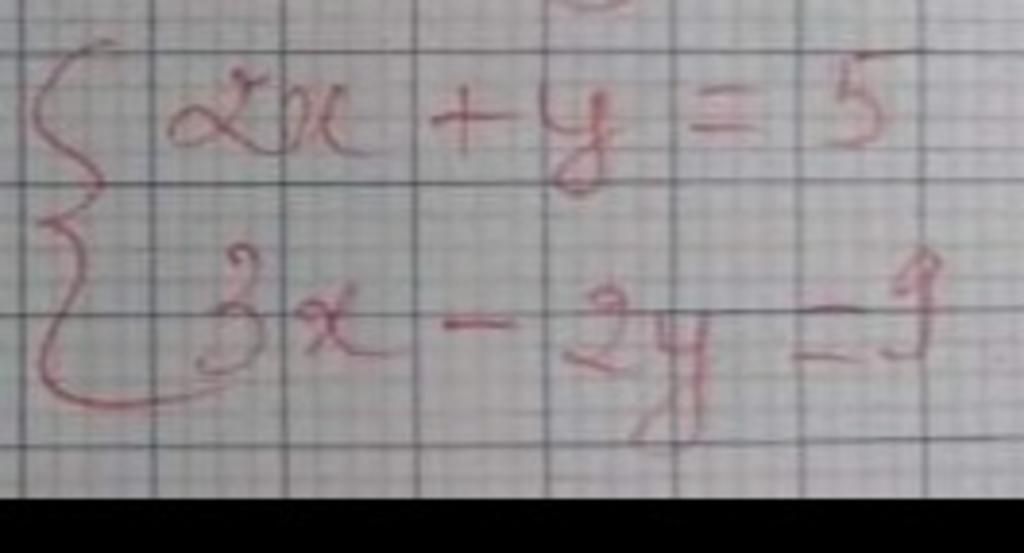 2x + y = 5
3x - 2y = 9